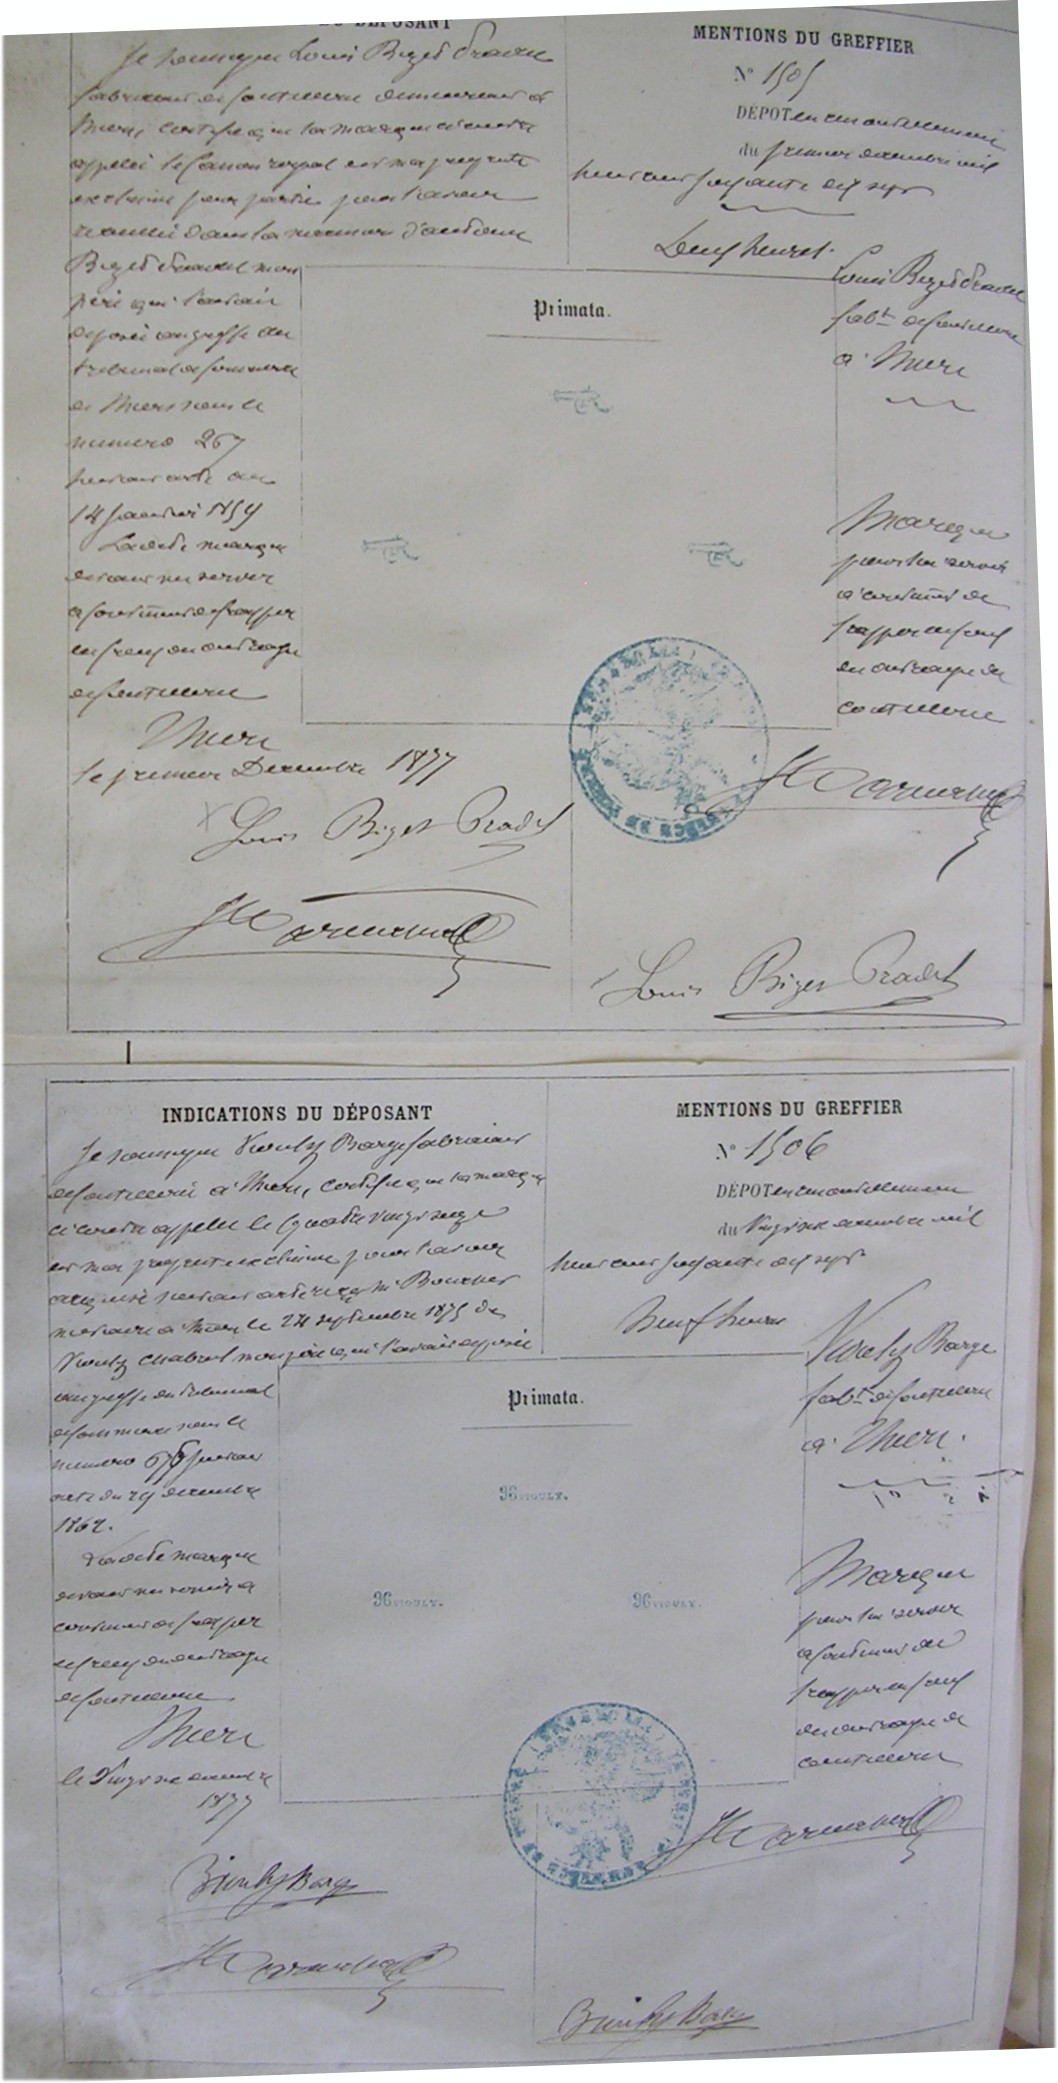 DÉPOSANT
Je soussigné Louis Bizet Pradel
fabricant de coutellerie demeurant à
Thiers, certifie que la marque ci contre
appelée le Canon rayé est ma propriété
exclusive pour partie pour l'avoir
recueillie dans la succession d'antoine
Bizet Pradel mon
père qui l'avait
déposée au greffe du
tribunal de Commerce
de Thiers sous le
numéro 267
suivant acte du
14 Janvier 1859
La dite marque
devant me servir
à continuer de frapper
en creux du ouvrage
de coutellerie
Thiers
le premier Décembre 1877
Louis Bizet Pradel
MENTIONS DU GREFFIER
N° 1505
DÉPOT en renouvellement
du premier décembre mil
huit cent soixante dix sept
heures.
Louis Bizet Pradel
fabt de coutellerie
à Thiers
Primata.
Marque
pour lui servir
à continuer de
frapper en creux
du ouvrage de
coutellerie
Louis Bizet Pradel
INDICATIONS DU DÉPOSANT
Je soussigné Viouly Barge fabricant
de coutellerie à Thiers, certifie que la marque
ci contre appelée le Quatre vingt seize
est ma propriété exclusive pour l'avoir
acquise suivant acte reçu Me
notaire à Thiers le 24 septembre 1875 de
Viouly Chabrol mon père qui l'avait déposée
au greffe du tribunal
de Commerce sous le
numéro suivant
acte du 29 décembre
1862.
La dite marque
devant me servir à
continuer de frapper
en creux du ouvrage
de coutellerie
Thiers
le Vingt six décembre
1877
Viouly Barge
MENTIONS DU GREFFIER
N° 1506
DÉPOT en renouvellement
du Vingt six décembre mil
huit cent soixante dix sept
Neuf heures
Viouly Barge
fabt de coutellerie
à Thiers.
Primata.
96 VIOULY.
96 VIOULY.
96 VIOULY.
Marque
pour lui servir
à continuer de
frapper en creux
du ouvrage de
coutellerie
Viouly Barge